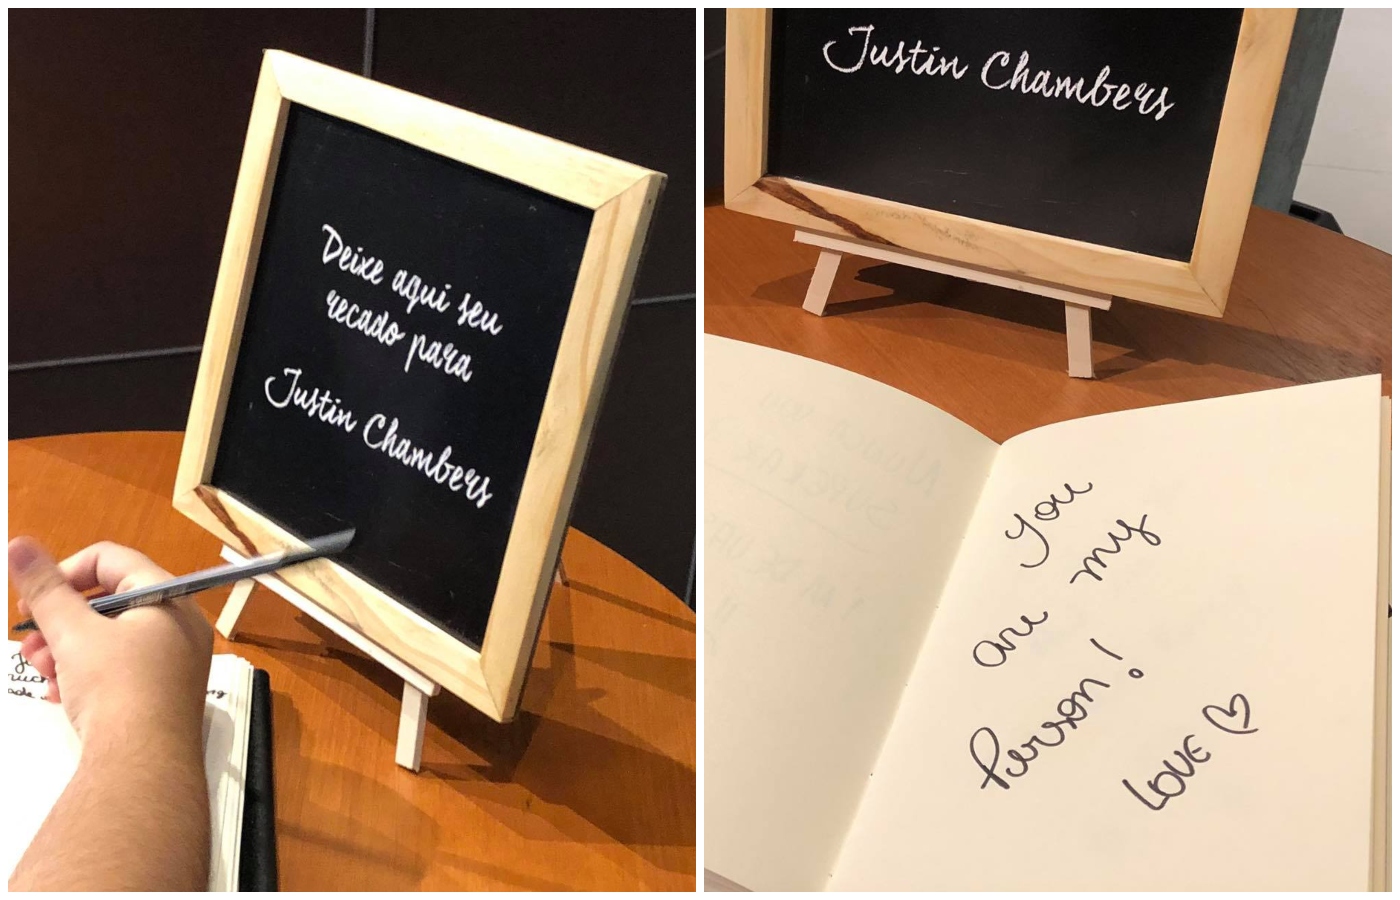 Deixe aqui seu
recado para
Justin Chambers
Justin Chambers
You
are my
Person!
LOVE